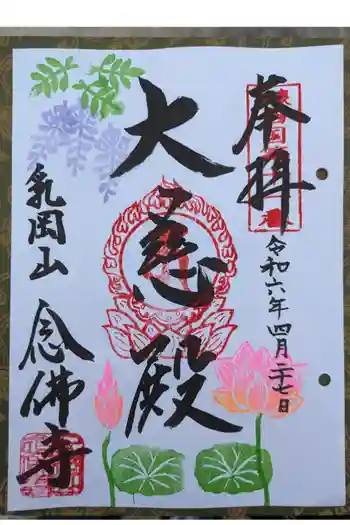 奉拝
令和六年四月二十七日
大慈殿
乳岡山
念佛寺